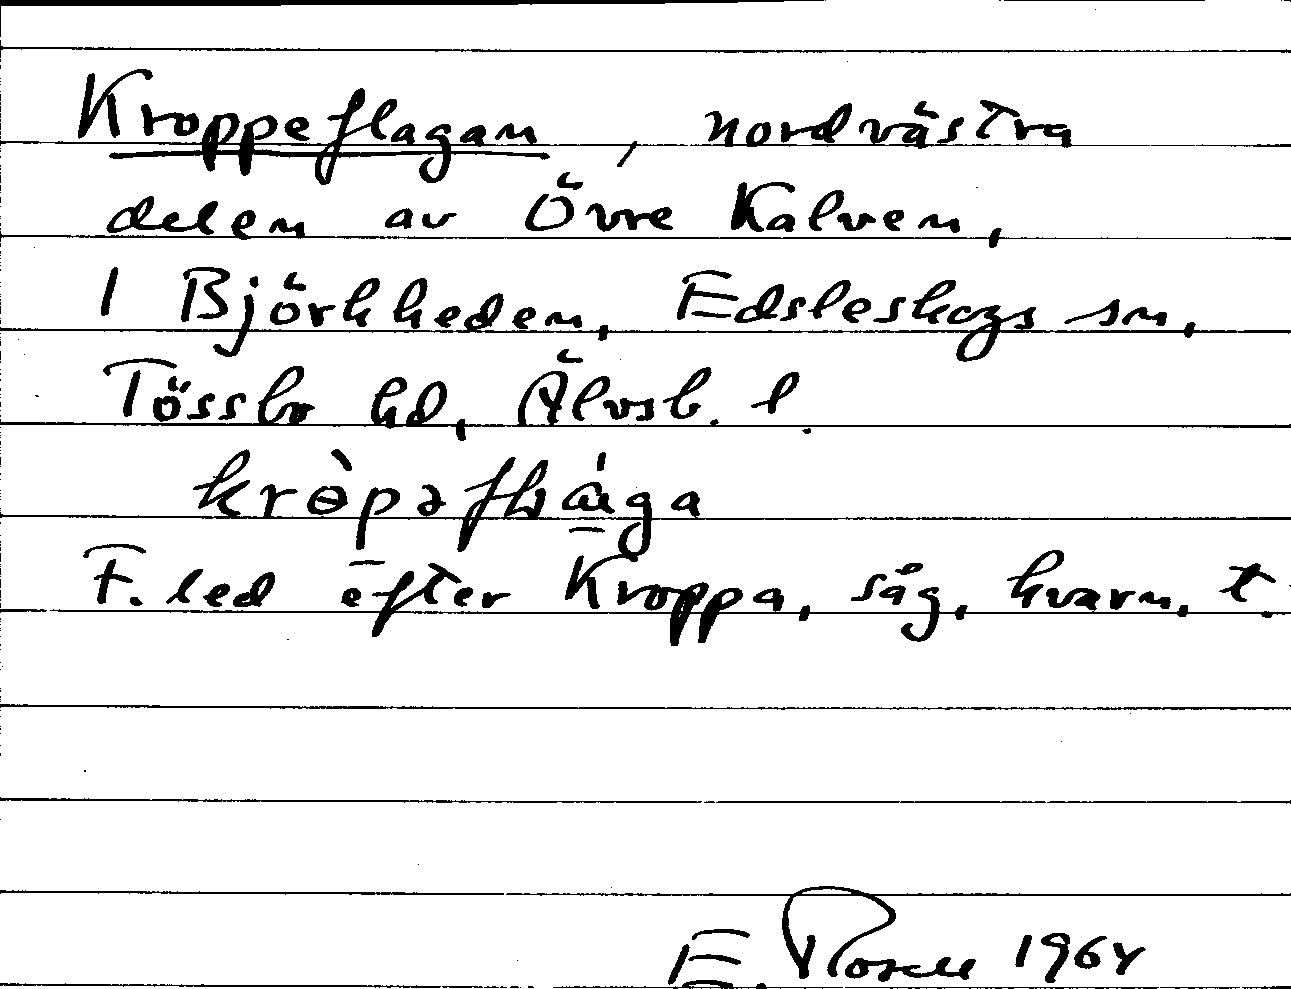 Kroppeflagan, nordvästra
delen av Övre Kalven,
1 Björkheden, Edsleskogs sn,
Tössbo hd, Älvsb. l.
F. led efter Kroppa, såg, kvarn, t.
E. Rosell 1964